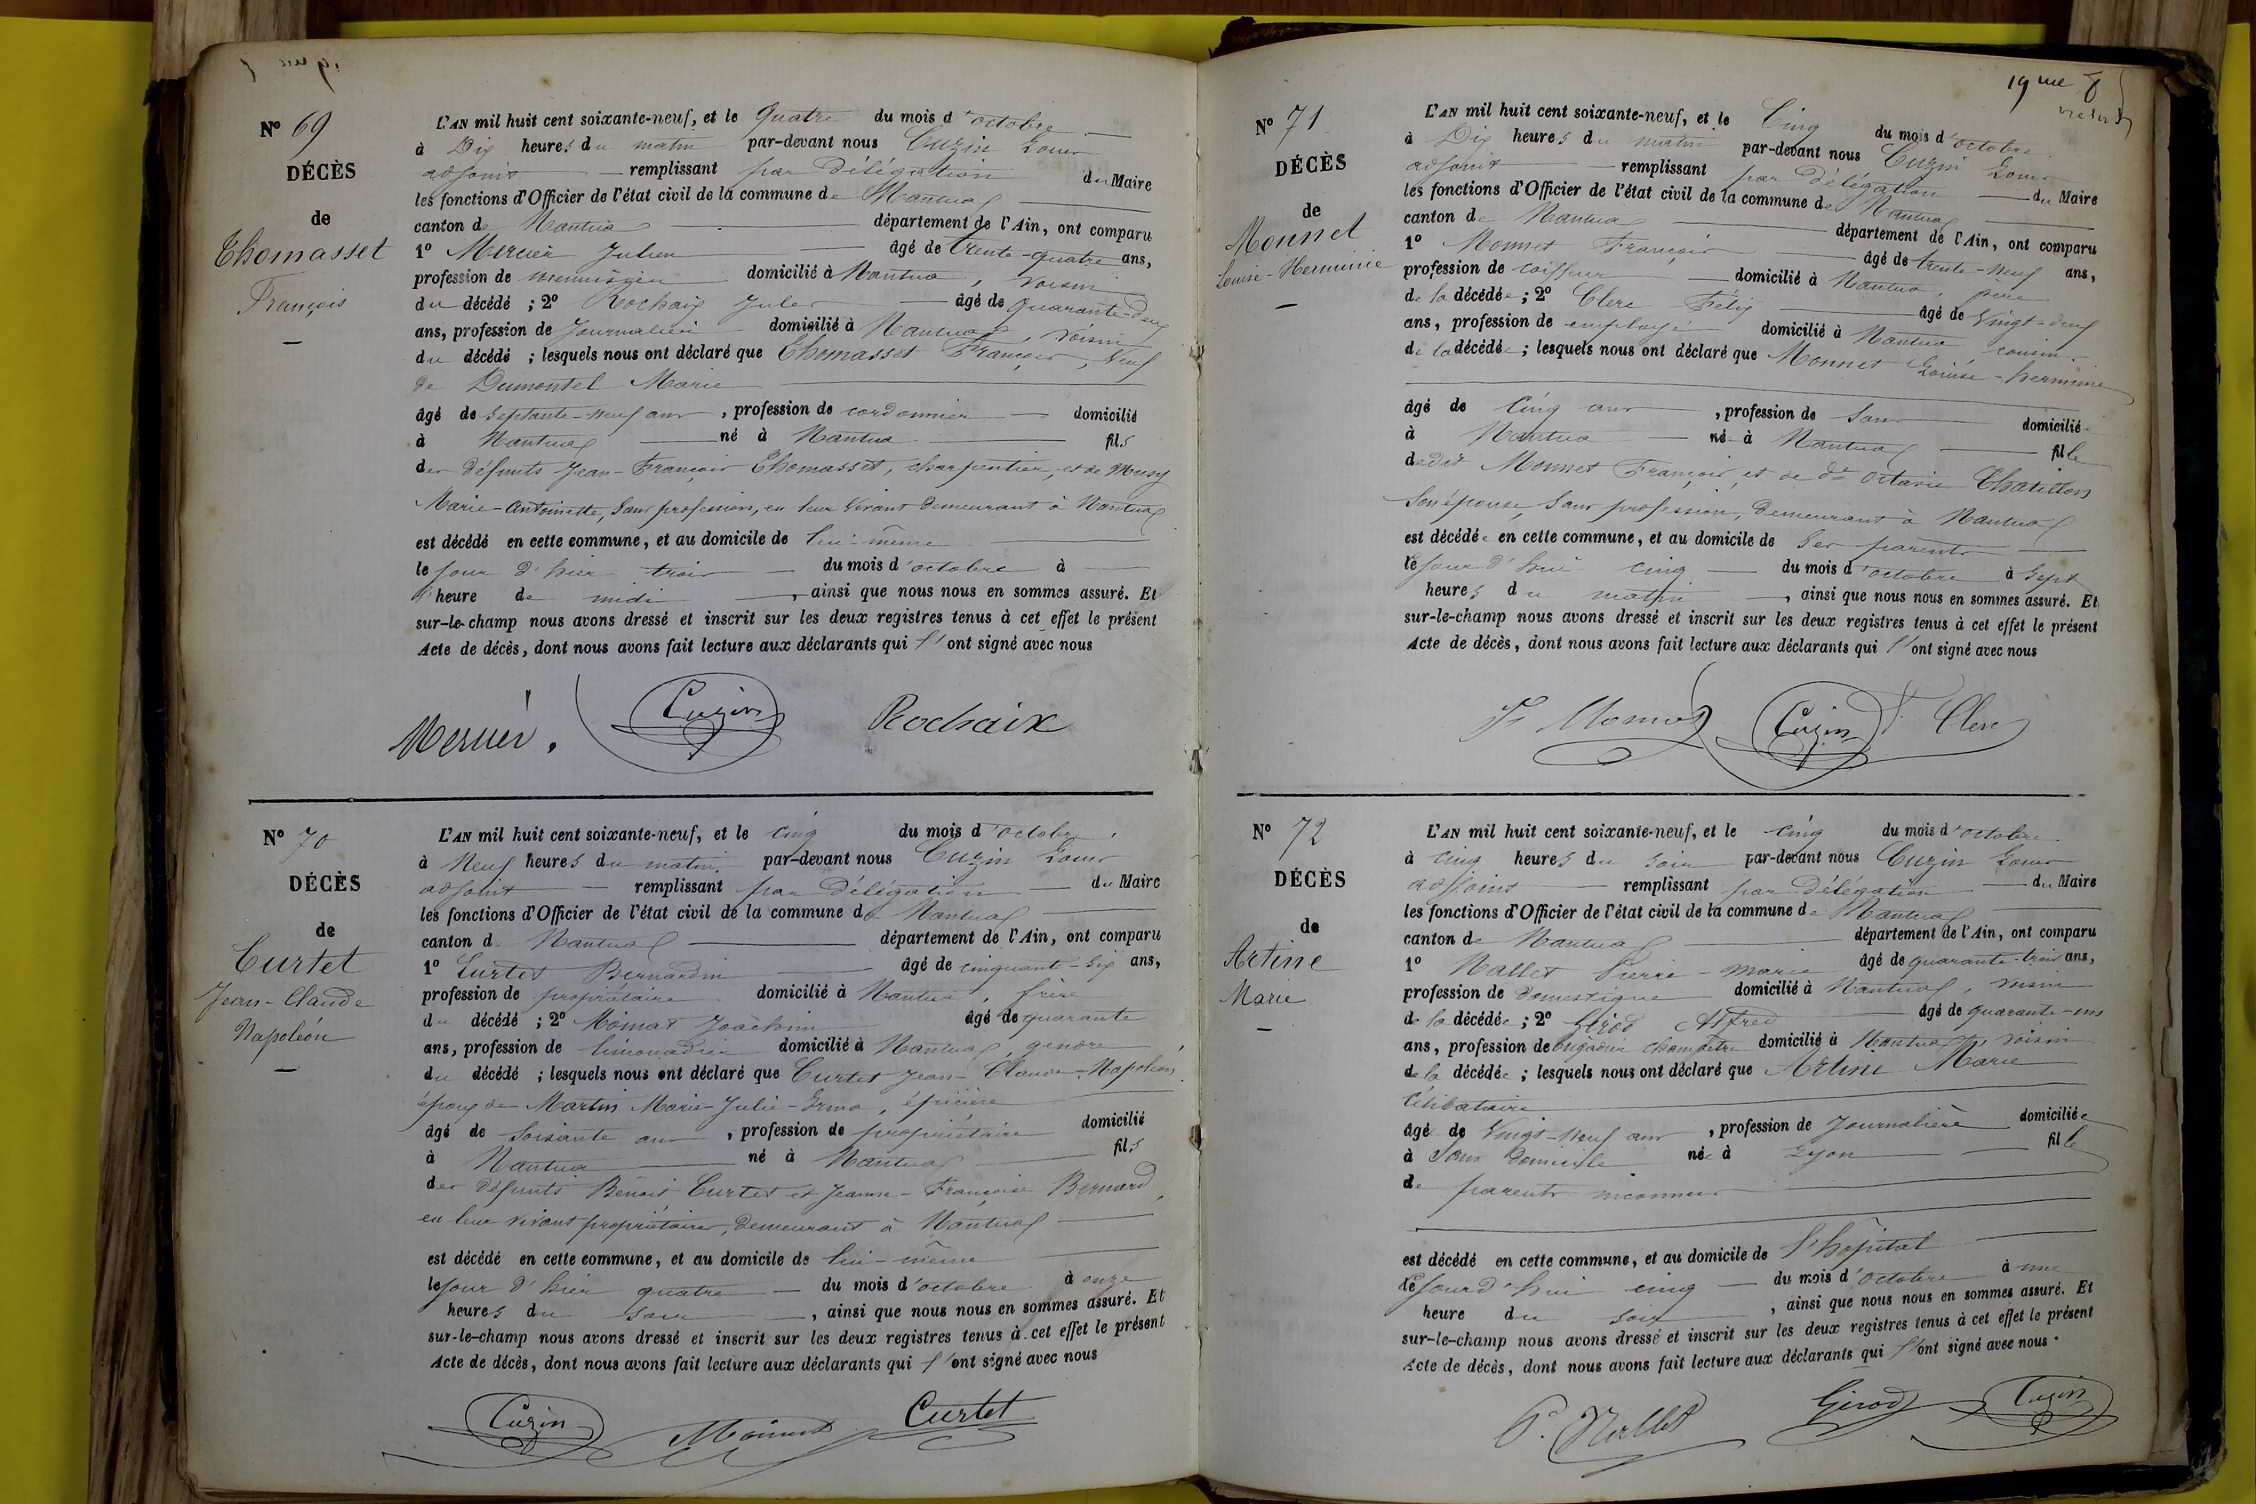 N° 69
DÉCÈS
de
Thomasset
François
L'AN mil huit cent soixante-neuf, et le Quatre du mois d'octobre
à Dix heures du matin par-devant nous Cuzin Louis
adjoint remplissant par délégation du Maire
les fonctions d'Officier de l'état civil de la commune de Nantua
canton de Nantua département de l'Ain, ont comparu
1° Mercier Julien âgé de trente-quatre ans,
profession de menuisier domicilié à Nantua, voisin
du décédé ; 2° Rochaix Jules âgé de quarante-deux
ans, profession de Journalier domicilié à Nantua, voisin
du décédé ; lesquels nous ont déclaré que Thomasset François, veuf
de Dumontel Marie
âgé de septante-neuf ans, profession de cordonnier domicilié
à Nantua né à Nantua fils
des défunts Jean-François Thomasset, charpentier, et de Musy
Marie-Antoinette, sans profession, en leur vivant demeurant à Nantua
est décédé en cette commune, et au domicile de lui-même
le jour d'hier trois du mois d'octobre à
l'heure de midi, ainsi que nous nous en sommes assuré. Et
sur-le-champ nous avons dressé et inscrit sur les deux registres tenus à cet effet le présent
Acte de décès, dont nous avons fait lecture aux déclarants qui l'ont signé avec nous
Mercier. Cuzin Rochaix
N° 70
DÉCÈS
de
Curtet
Jean-Claude
Napoléon
L'AN mil huit cent soixante-neuf, et le cinq du mois d'octobre,
à Neuf heures du matin, par-devant nous Cuzin Louis
adjoint remplissant par délégation du Maire
les fonctions d'Officier de l'état civil de la commune de Nantua
canton de Nantua département de l'Ain, ont comparu
1° Curtet Bernardin âgé de cinquante-six ans,
profession de propriétaire domicilié à Nantua, frère
du décédé ; 2° Moinat Joachim âgé de quarante
ans, profession de limonadier domicilié à Nantua, gendre
du décédé ; lesquels nous ont déclaré que Curtet Jean-Claude-Napoléon,
époux de Martin Marie-Julie-Irma, épicière
âgé de soixante ans, profession de propriétaire domicilié
à Nantua né à Nantua fils
des défunts Benoit Curtet et Jeanne-Françoise Bernard,
en leur vivant propriétaires, demeurant à Nantua
est décédé en cette commune, et au domicile de lui-même
le jour d'hier quatre du mois d'octobre à onze
heures du soir, ainsi que nous nous en sommes assuré. Et
sur-le-champ nous avons dressé et inscrit sur les deux registres tenus à cet effet le présent
Acte de décès, dont nous avons fait lecture aux déclarants qui l'ont signé avec nous
Cuzin Moinat Curtet
19me
N° 71
DÉCÈS
de
Monnet
Louise-Herminie
L'AN mil huit cent soixante-neuf, et le Cinq du mois d'octobre
à Dix heures du matin par-devant nous Cuzin Louis
adjoint remplissant par délégation du Maire
les fonctions d'Officier de l'état civil de la commune de Nantua
canton de Nantua département de l'Ain, ont comparu
1° Monnet François âgé de trente-neuf ans,
profession de coiffeur domicilié à Nantua, père
de la décédée ; 2° Clerc Félix âgé de vingt-deux
ans, profession de employé domicilié à Nantua cousin
de la décédée ; lesquels nous ont déclaré que Monnet Louise-herminie
âgé de cinq ans, profession de sans domiciliée
à Nantua née à Nantua fille
dudit Monnet François, et de de Octavie Chatillon
son épouse, sans profession, demeurant à Nantua
est décédée en cette commune, et au domicile de ses parents
le jour d'hui cinq du mois d'octobre à sept
heures du matin, ainsi que nous nous en sommes assuré. Et
sur-le-champ nous avons dressé et inscrit sur les deux registres tenus à cet effet le présent
Acte de décès, dont nous avons fait lecture aux déclarants qui l'ont signé avec nous
Fs Monnet Cuzin F Clerc
N° 72
DÉCÈS
de
Artine
Marie
L'AN mil huit cent soixante-neuf, et le cinq du mois d'octobre
à cinq heures du soir par-devant nous Cuzin Louis
adjoint remplissant par délégation du Maire
les fonctions d'Officier de l'état civil de la commune de Nantua
canton de Nantua département de l'Ain, ont comparu
1° Nallet Pierre-marie âgé de quarante-trois ans,
profession de domestique domicilié à Nantua, voisin
de la décédée ; 2° Girod Alfred âgé de quarante-un
ans, profession de brigadier champêtre domicilié à Nantua, voisin
de la décédée ; lesquels nous ont déclaré que Artine Marie
célibataire
âgé de vingt-neuf ans, profession de Journalière domiciliée
à sans domicile née à Lyon fille
de parents inconnus
est décédé en cette commune, et au domicile de l'hôpital
le jour d'hui cinq du mois d'octobre à une
heure du soir, ainsi que nous nous en sommes assuré. Et
sur-le-champ nous avons dressé et inscrit sur les deux registres tenus à cet effet le présent
Acte de décès, dont nous avons fait lecture aux déclarants qui l'ont signé avec nous.
P. Nallet Girod Cuzin